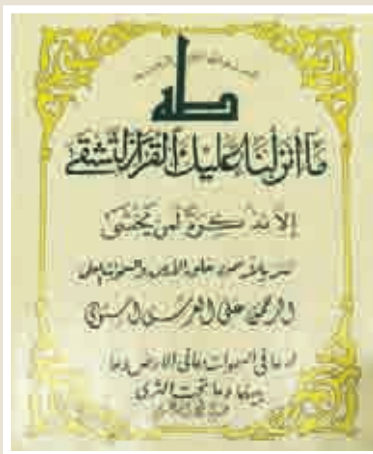 بسم الله الرحمن الرحيم
طه
ما أنزلنا عليك القرآن لتشقى
إلا تذكرة لمن يخشى
تنزيلا ممن خلق الأرض والسموات العلى
الرحمن على العرش استوى
له ما في السموات وما في الأرض وما
بينهما وما تحت الثرى